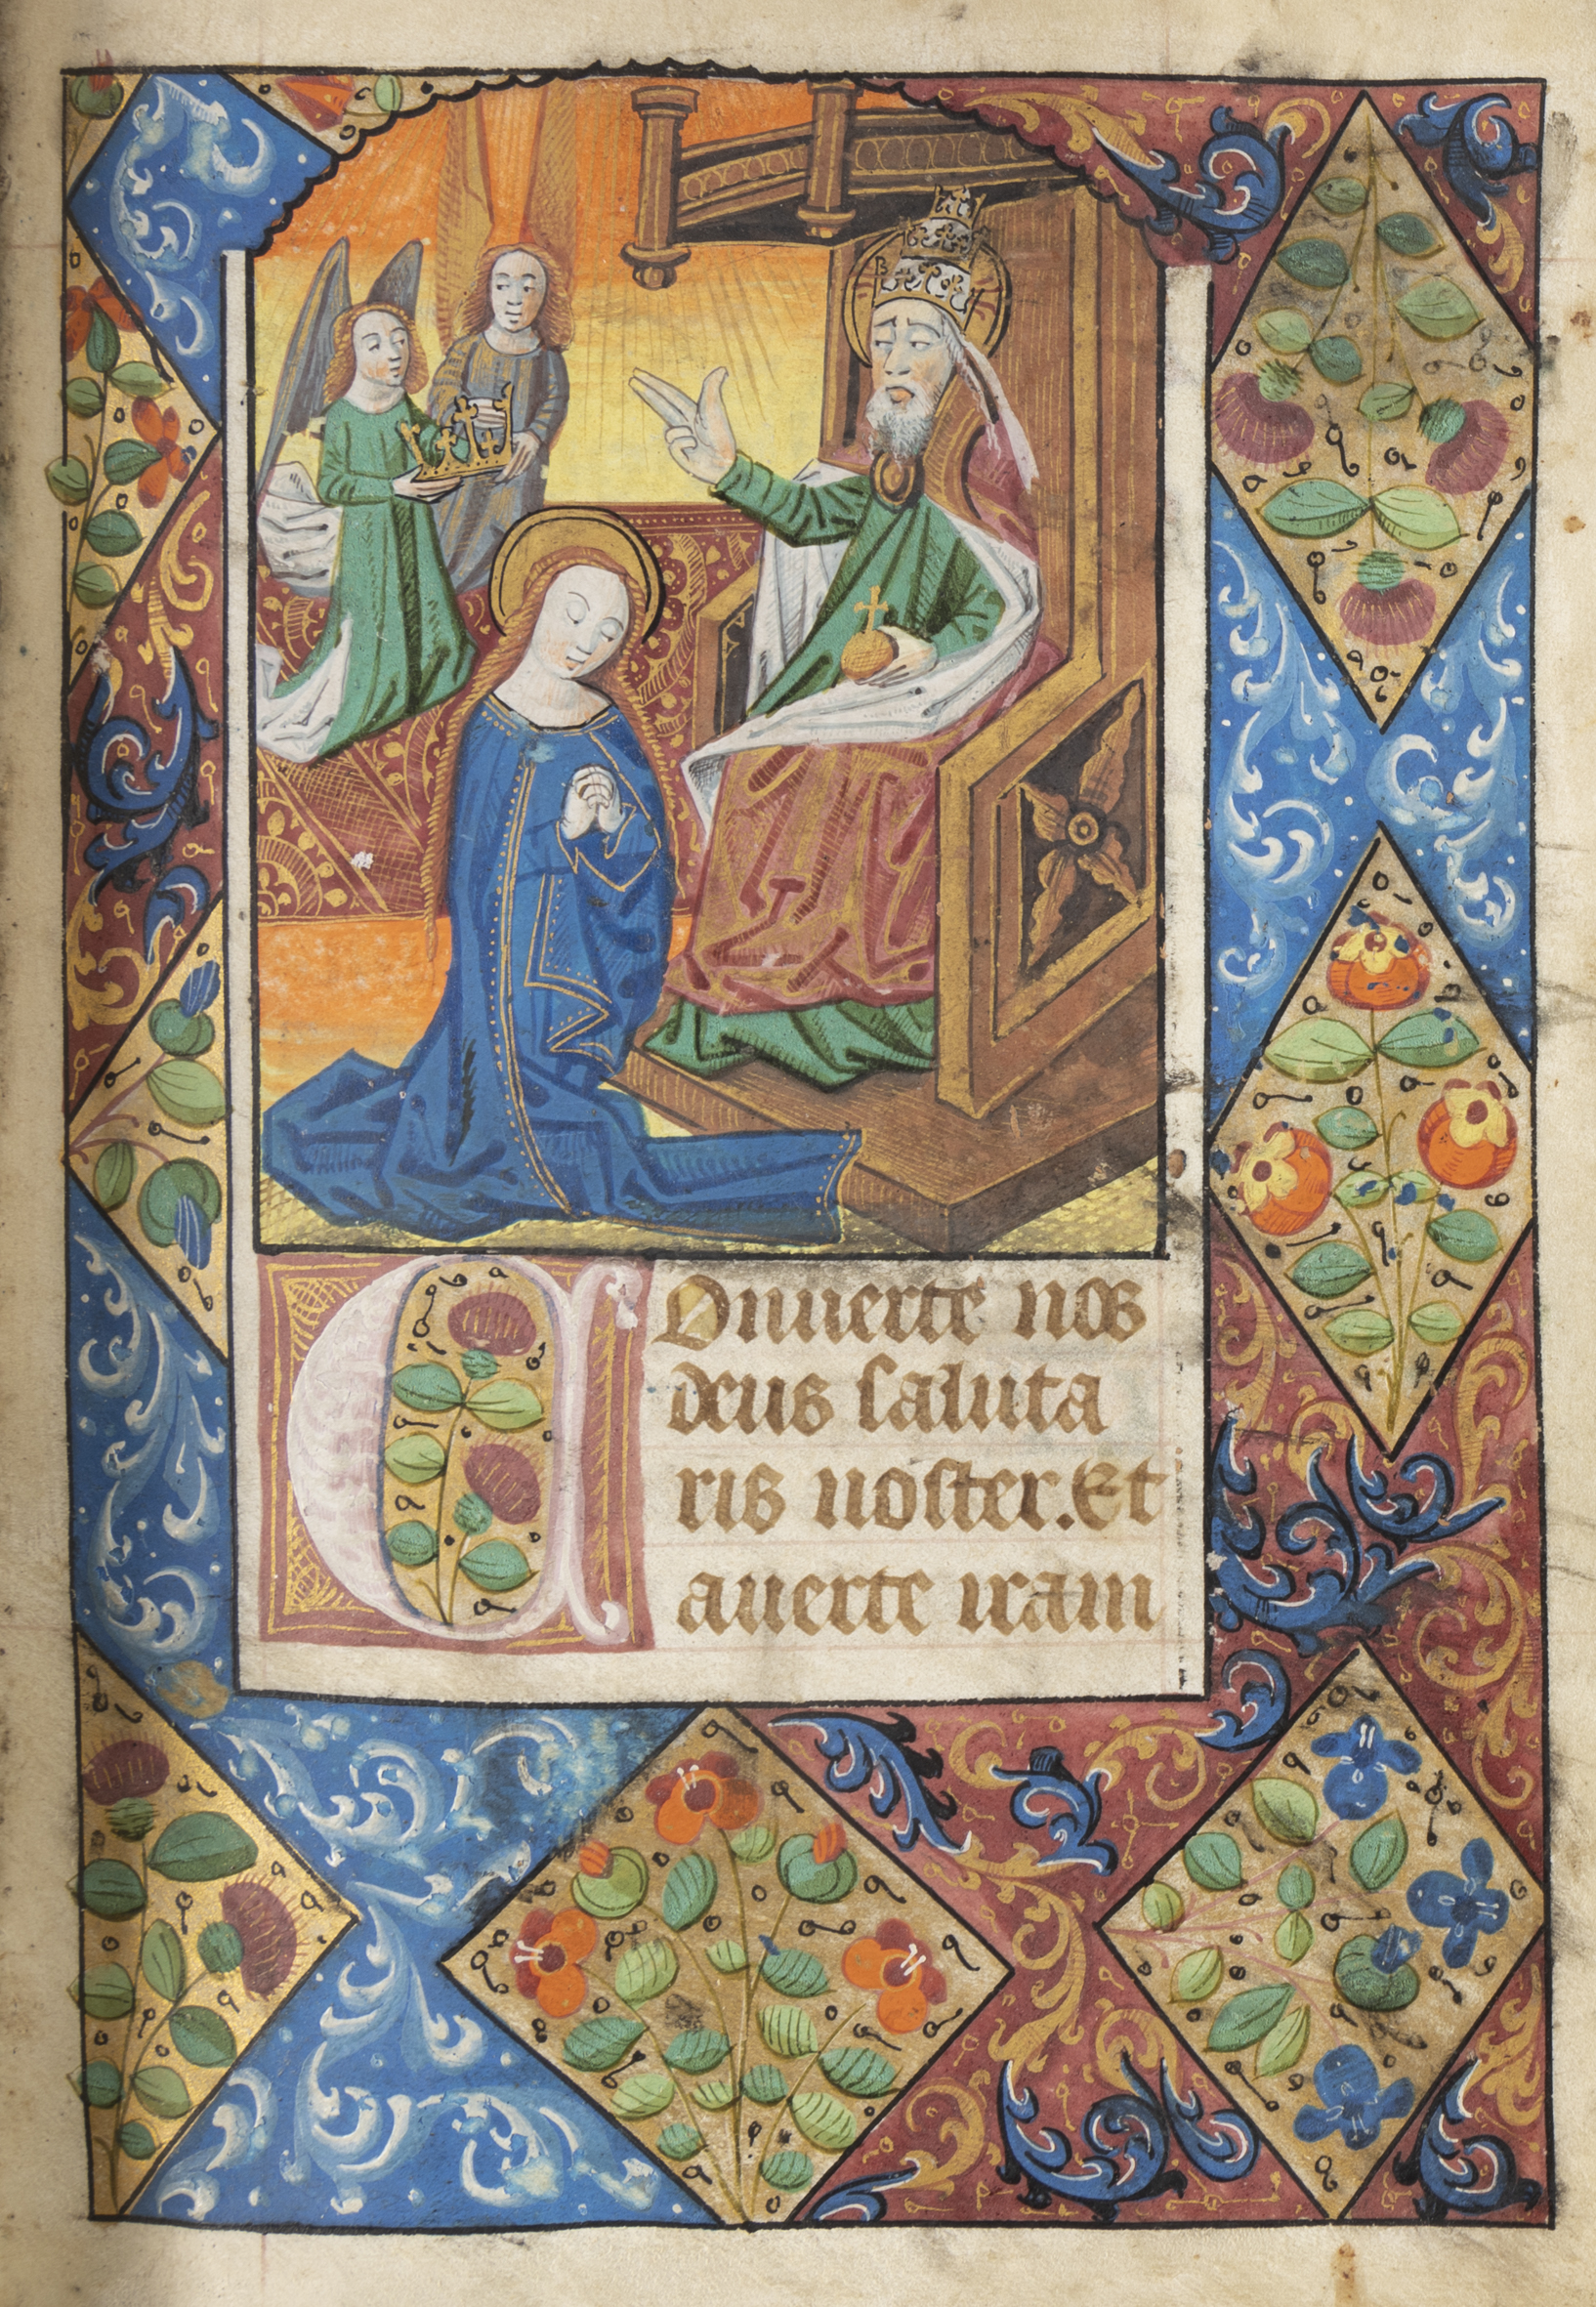 Conuerte nos
deus saluta
ris noster. Et
auerte iram